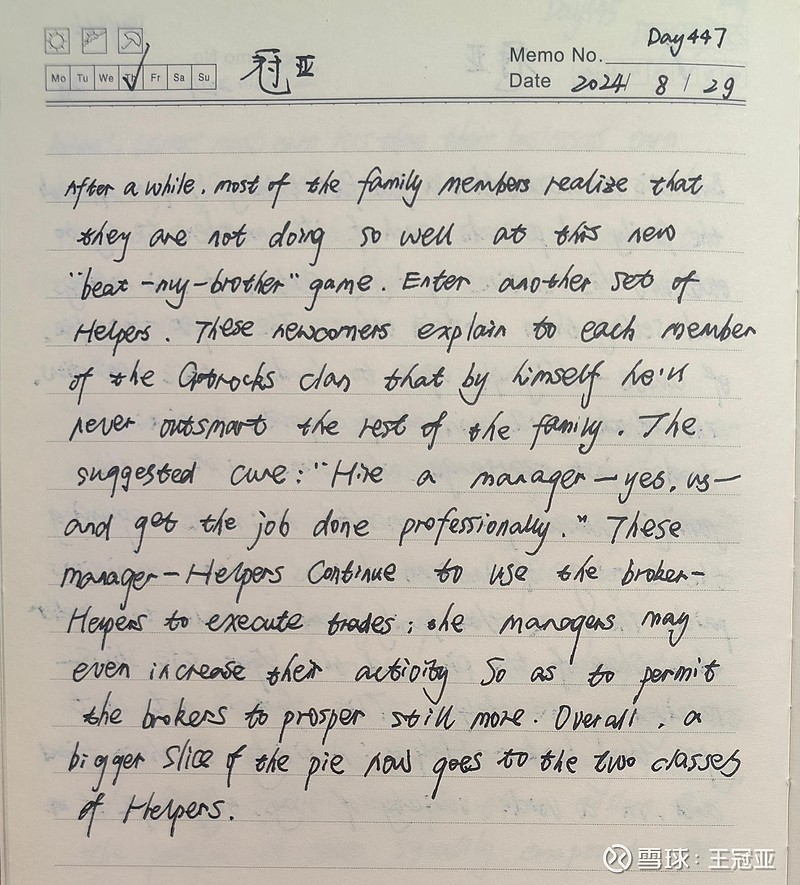 Day447
Memo No.
Mo Tu We Th Fr Sa Su
冠亚
Date 2024 / 8 / 29
After a while, most of the family members realize that
they are not doing so well at this new
"beat-my-brother" game. Enter another set of
Helpers. These newcomers explain to each member
of the Gotrocks clan that by himself he'll
never outsmart the rest of the family. The
suggested cure: "Hire a manager—yes, us—
and get the job done professionally." These
manager-Helpers continue to use the broker-
Helpers to execute trades; the managers may
even increase their activity so as to permit
the brokers to prosper still more. Overall, a
bigger slice of the pie now goes to the two classes
of Helpers.
雪球:王冠亚